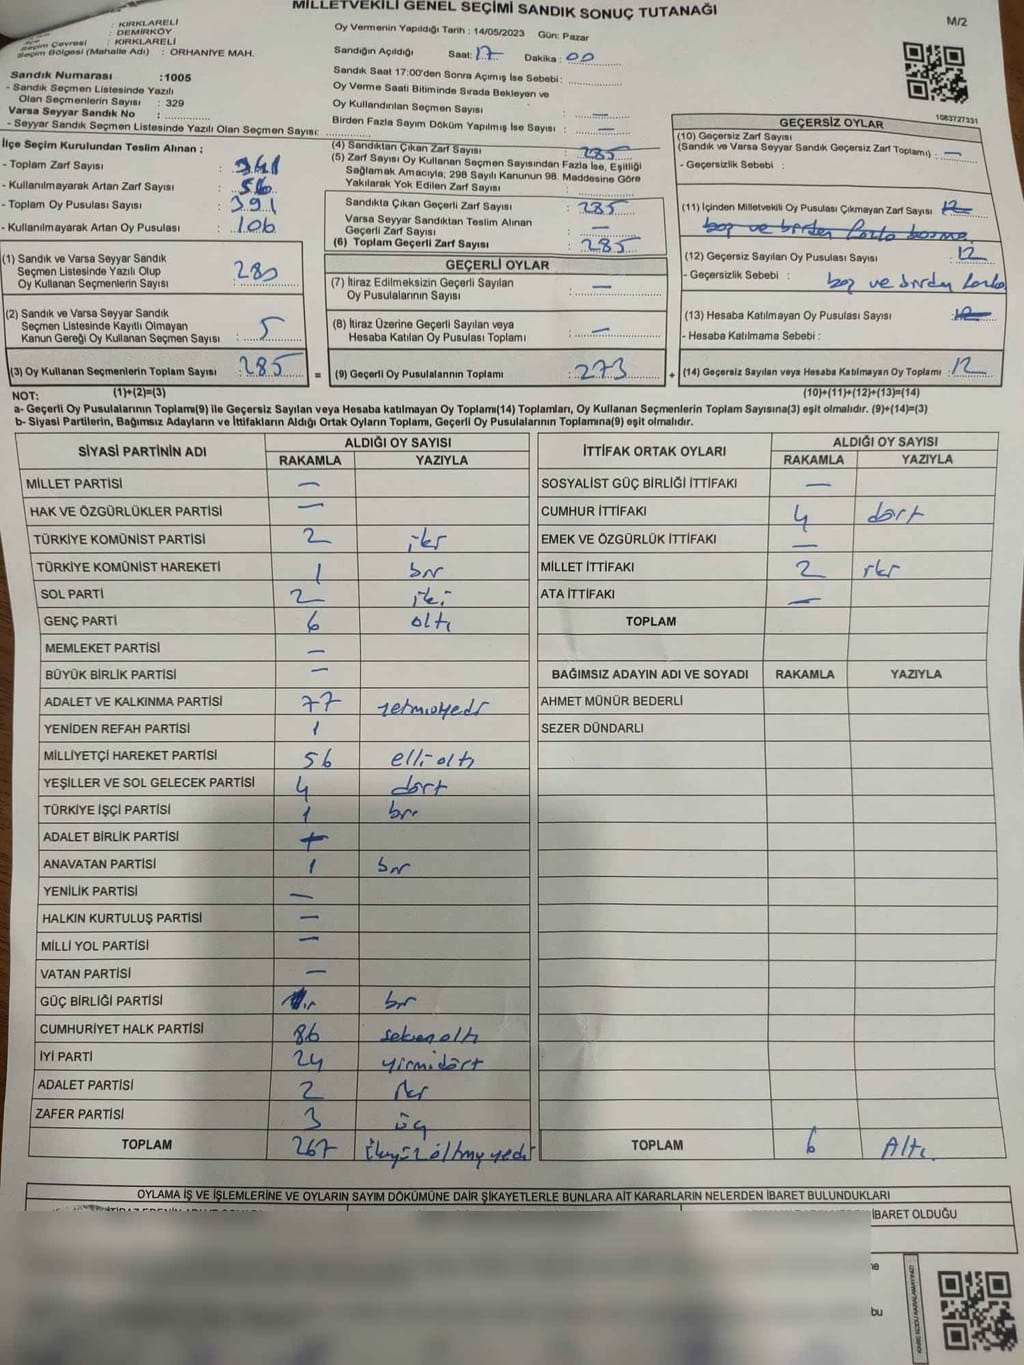 MİLLETVEKİLİ GENEL SEÇİMİ SANDIK SONUÇ TUTANAĞI
M/2
: KIRKLARELİ
: DEMİRKÖY
Seçim Çevresi : KIRKLARELİ
Seçim Bölgesi (Mahalle Adı) : ORHANİYE MAH.
Oy Vermenin Yapıldığı Tarih : 14/05/2023 Gün: Pazar
Sandığın Açıldığı Saat: 17 Dakika : 00
Sandık Saat 17:00'den Sonra Açımış İse Sebebi:
Oy Verme Saati Bitiminde Sırada Bekleyen ve
Oy Kullandırılan Seçmen Sayısı : —
Birden Fazla Sayım Döküm Yapılmış İse Sayısı : —
Sandık Numarası :1005
- Sandık Seçmen Listesinde Yazılı
Olan Seçmenlerin Sayısı : 329
Varsa Seyyar Sandık No :
- Seyyar Sandık Seçmen Listesinde Yazılı Olan Seçmen Sayısı:
1083727331
İlçe Seçim Kurulundan Teslim Alınan ;
- Toplam Zarf Sayısı : 341
- Kullanılmayarak Artan Zarf Sayısı : 56
- Toplam Oy Pusulası Sayısı : 391
- Kullanılmayarak Artan Oy Pusulası : 106
(1) Sandık ve Varsa Seyyar Sandık
Seçmen Listesinde Yazılı Olup
Oy Kullanan Seçmenlerin Sayısı : 280
(2) Sandık ve Varsa Seyyar Sandık
Seçmen Listesinde Kayıtlı Olmayan
Kanun Gereği Oy Kullanan Seçmen Sayısı : 5
(3) Oy Kullanan Seçmenlerin Toplam Sayısı : 285 =
(4) Sandıktan Çıkan Zarf Sayısı : 285
(5) Zarf Sayısı Oy Kullanan Seçmen Sayısından Fazla İse, Eşitliği
Sağlamak Amacıyla; 298 Sayılı Kanunun 98. Maddesine Göre
Yakılarak Yok Edilen Zarf Sayısı :
Sandıkta Çıkan Geçerli Zarf Sayısı : 285
Varsa Seyyar Sandıktan Teslim Alınan
Geçerli Zarf Sayısı : —
(6) Toplam Geçerli Zarf Sayısı : 285
GEÇERLİ OYLAR
(7) İtiraz Edilmeksizin Geçerli Sayılan
Oy Pusulalarının Sayısı : —
(8) İtiraz Üzerine Geçerli Sayılan veya
Hesaba Katılan Oy Pusulası Toplamı : —
(9) Geçerli Oy Pusulalarının Toplamı : 273 +
GEÇERSİZ OYLAR
(10) Geçersiz Zarf Sayısı
(Sandık ve Varsa Seyyar Sandık Geçersiz Zarf Toplamı) : —
- Geçersizlik Sebebi :
(11) İçinden Milletvekili Oy Pusulası Çıkmayan Zarf Sayısı : 12
boş ve birden fazla basma
(12) Geçersiz Sayılan Oy Pusulası Sayısı : 12
- Geçersizlik Sebebi : boş ve birden fazla
(13) Hesaba Katılmayan Oy Pusulası Sayısı : 12
- Hesaba Katılmama Sebebi :
(14) Geçersiz Sayılan veya Hesaba Katılmayan Oy Toplamı : 12
NOT: (1)+(2)=(3) (10)+(11)+(12)+(13)=(14)
a- Geçerli Oy Pusulalarının Toplamı(9) ile Geçersiz Sayılan veya Hesaba katılmayan Oy Toplamı(14) Toplamları, Oy Kullanan Seçmenlerin Toplam Sayısına(3) eşit olmalıdır. (9)+(14)=(3)
b- Siyasi Partilerin, Bağımsız Adayların ve İttifakların Aldığı Ortak Oyların Toplamı, Geçerli Oy Pusulalarının Toplamına(9) eşit olmalıdır.
SİYASİ PARTİNİN ADI ALDIĞI OY SAYISI
RAKAMLA YAZIYLA
MİLLET PARTİSİ —
HAK VE ÖZGÜRLÜKLER PARTİSİ —
TÜRKİYE KOMÜNİST PARTİSİ 2 iki
TÜRKİYE KOMÜNİST HAREKETİ 1 bir
SOL PARTİ 2 iki
GENÇ PARTİ 6 altı
MEMLEKET PARTİSİ —
BÜYÜK BİRLİK PARTİSİ —
ADALET VE KALKINMA PARTİSİ 77 yetmişyedi
YENİDEN REFAH PARTİSİ 1
MİLLİYETÇİ HAREKET PARTİSİ 56 elli altı
YEŞİLLER VE SOL GELECEK PARTİSİ 4 dört
TÜRKİYE İŞÇİ PARTİSİ 1 bir
ADALET BİRLİK PARTİSİ
ANAVATAN PARTİSİ 1 bir
YENİLİK PARTİSİ —
HALKIN KURTULUŞ PARTİSİ —
MİLLİ YOL PARTİSİ —
VATAN PARTİSİ —
GÜÇ BİRLİĞİ PARTİSİ bir
CUMHURİYET HALK PARTİSİ 86 seksen altı
İYİ PARTİ 24 yirmidört
ADALET PARTİSİ 2 iki
ZAFER PARTİSİ 3 üç
TOPLAM 267 ikiyüz altmışyedi
İTTİFAK ORTAK OYLARI ALDIĞI OY SAYISI
RAKAMLA YAZIYLA
SOSYALİST GÜÇ BİRLİĞİ İTTİFAKI —
CUMHUR İTTİFAKI 4 dört
EMEK VE ÖZGÜRLÜK İTTİFAKI —
MİLLET İTTİFAKI 2 iki
ATA İTTİFAKI —
TOPLAM
BAĞIMSIZ ADAYIN ADI VE SOYADI RAKAMLA YAZIYLA
AHMET MÜNÜR BEDERLİ
SEZER DÜNDARLI
TOPLAM 6 Altı
OYLAMA İŞ VE İŞLEMLERİNE VE OYLARIN SAYIM DÖKÜMÜNE DAİR ŞİKAYETLERLE BUNLARA AİT KARARLARIN NELERDEN İBARET BULUNDUKLARI
İBARET OLDUĞU
ne
bu
KARE KODU KARALAMAYINIZ!